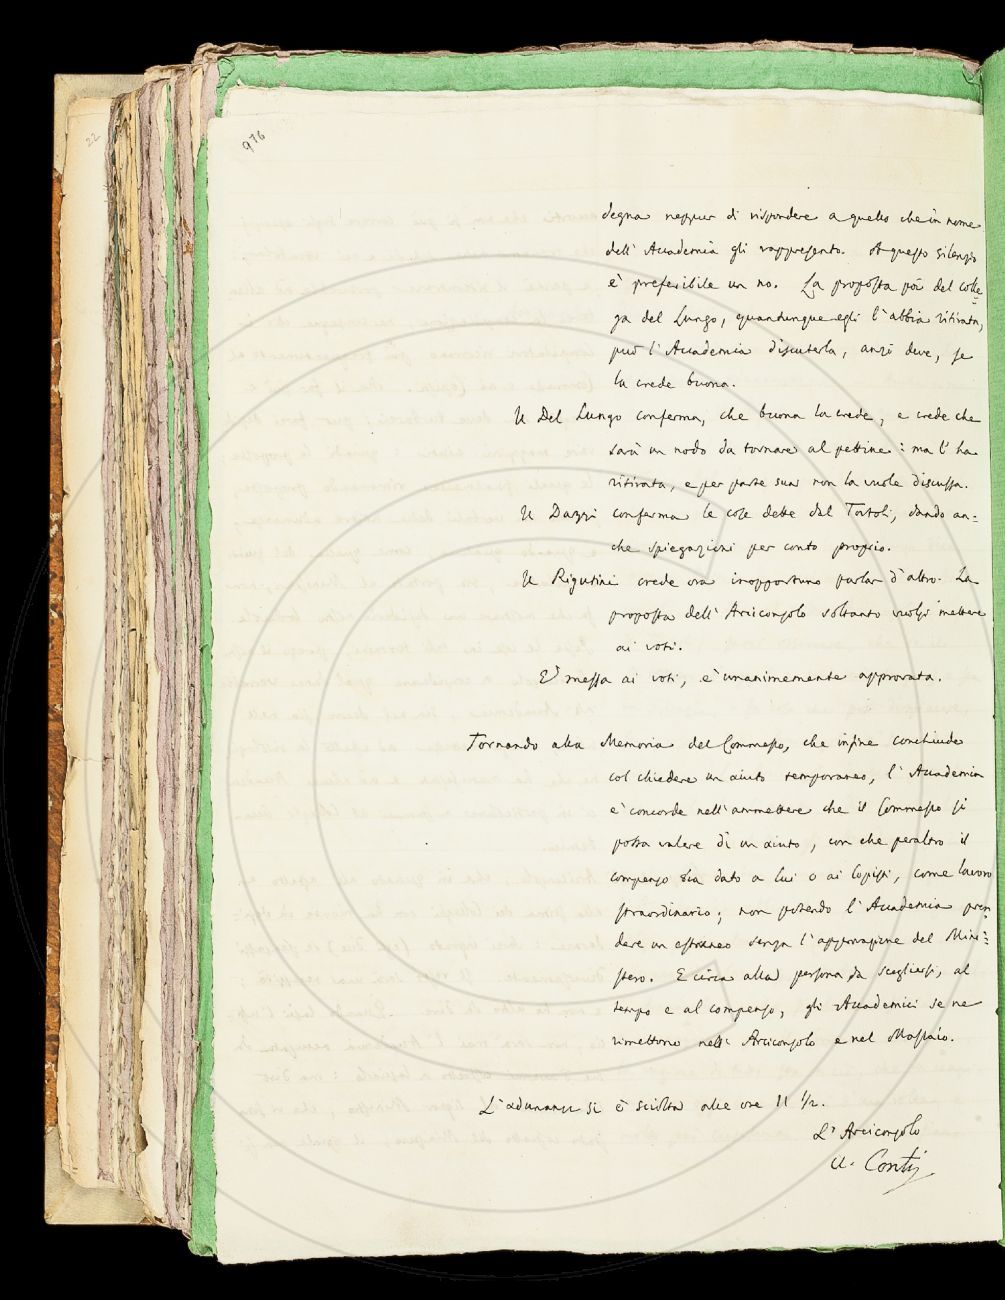 22
976
degna neppur di rispondere a quello che in nome
dell' Accademia gli rappresento. A questo silenzio
è preferibile un no. La proposta poi del colle=
ga del Lungo, quantunque egli l'abbia ritirata,
può l'Accademia discuterla, anzi deve, se
la crede buona.
Il Del Lungo conferma, che buona la crede, e crede che
sarà un nodo da tornare al pettine: ma l'ha
ritirata, e per parte sua non la vuole discussa.
Il Dazzi conferma le cose dette dal Tortoli, dando an=
che spiegazioni per conto proprio.
Il Rigutini crede ora inopportuno parlar d'altro. La
proposta dell'Arciconsolo soltanto vuolsi mettere
ai voti.
È messa ai voti, è unanimemente approvata.
Tornando alla Memoria del Commesso, che infine conchiude
col chiedere un aiuto temporaneo, l'Accademia
è concorde nell'ammettere che il Commesso si
possa valere di un aiuto, con che peraltro il
compenso sia dato a lui o ai Copisti, come lavoro
straordinario; non potendo l'Accademia pren=
dere un estraneo senza l'approvazione del Mini=
stero. E circa alla persona da scegliersi, al
tempo e al compenso, gli Accademici se ne
rimettono nell'Arciconsolo e nel Massaio.
L'adunanza si è sciolta alle ore 11 1/2.
L'Arciconsolo
A. Conti